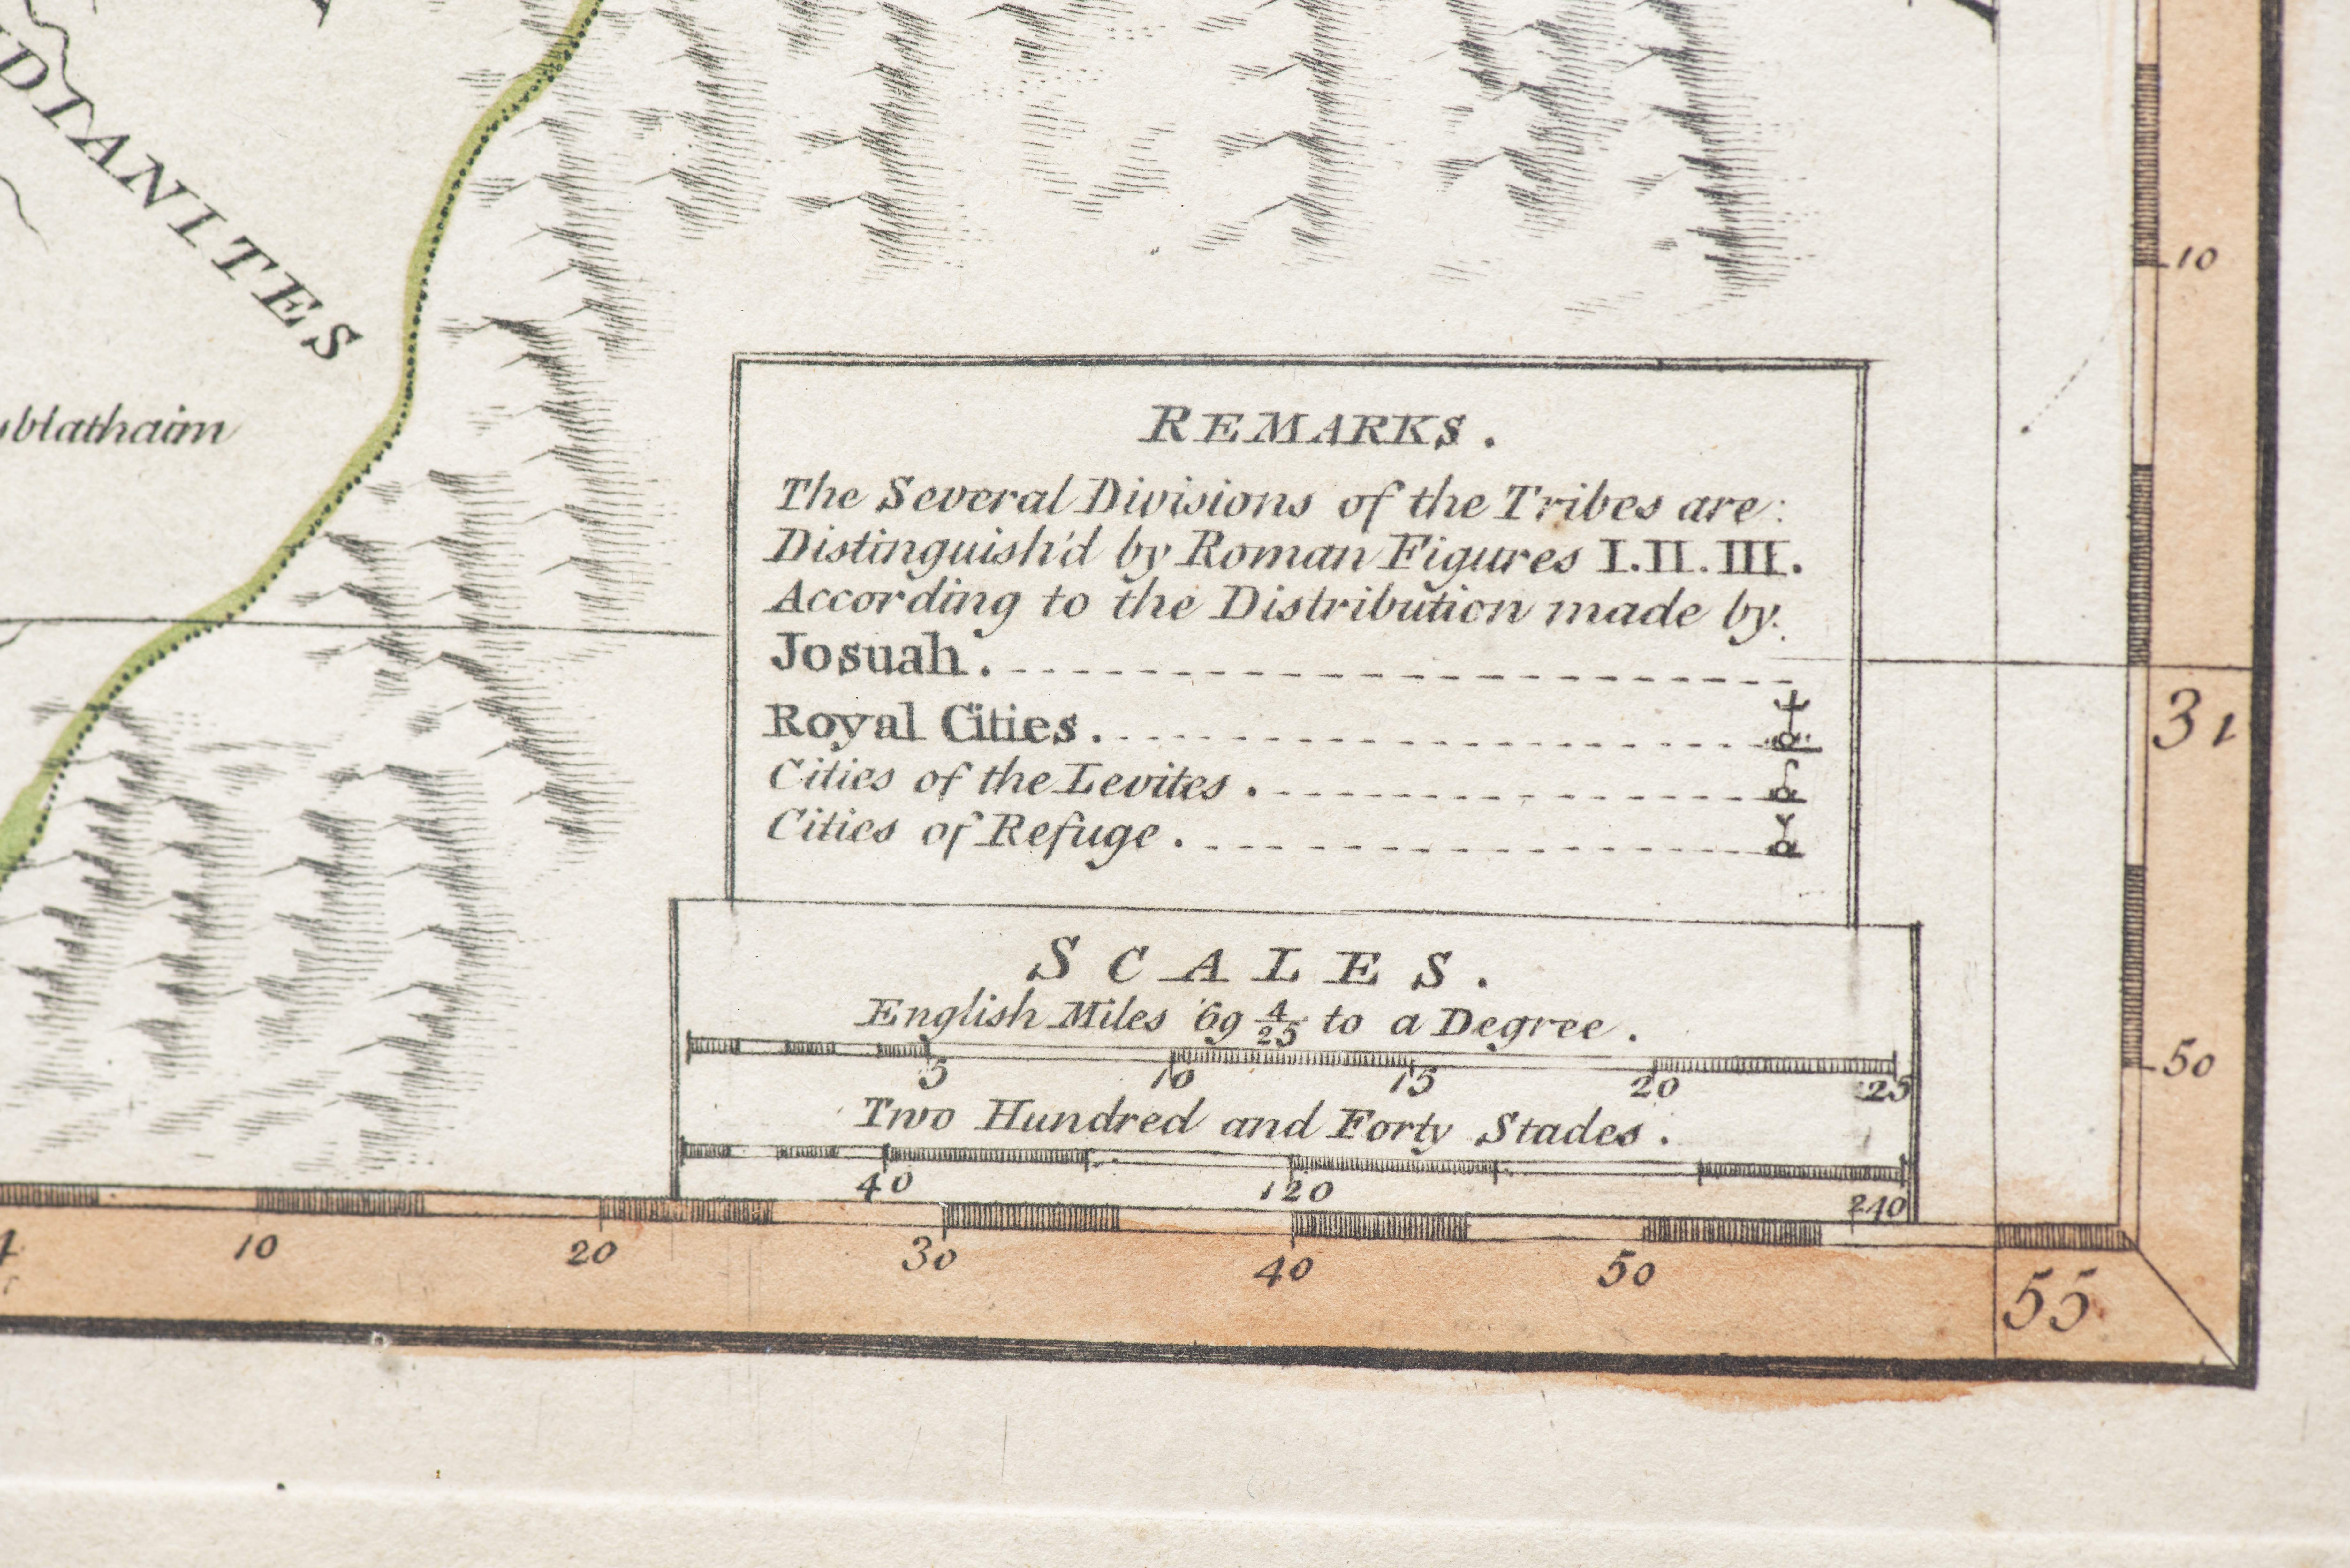 DIANITES
blathaim
REMARKS.
The Several Divisions of the Tribes are:
Distinguish'd by Roman Figures I.II.III.
According to the Distribution made by.
Josuah.
Royal Cities.
Cities of the Levites.
Cities of Refuge.
SCALES.
English Miles 69 4/25 to a Degree.
5 10 15 20 25
Two Hundred and Forty Stades.
40 120 240
10
31
50
10 20 30 40 50 55